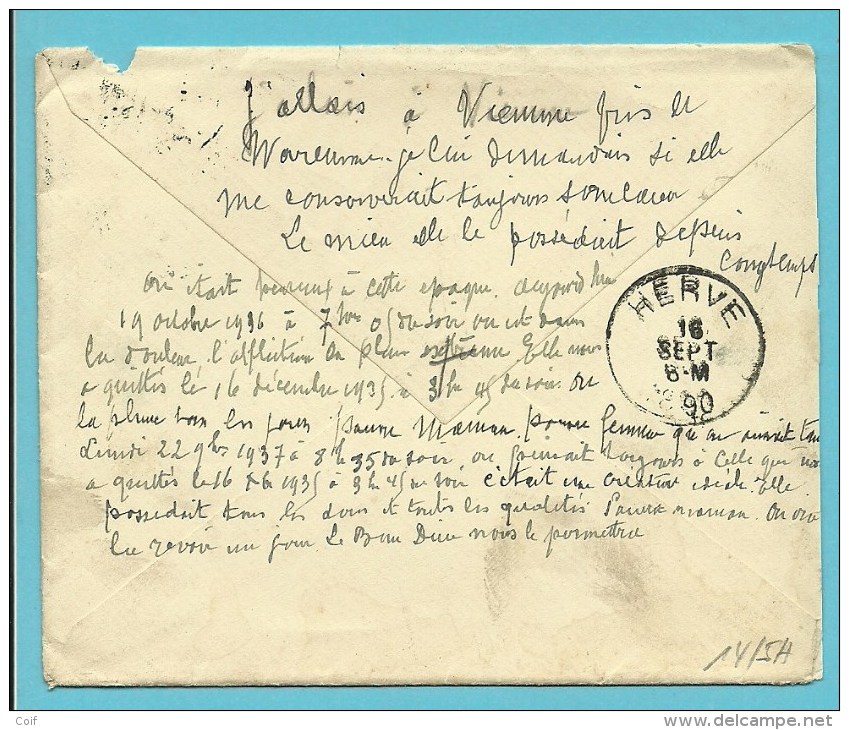 J'allais à Vienne fris de
Waremme je lui demandais si elle
me conserverait toujours son cœur
Le mien elle le possédait depuis
longtemps
on était heureux à cette epoque. aujourd'hui
19 octobre 1936 à 7 hrs 05 du soir on est dans
la douleur l'affliction la plus extrême Elle nous
a quittés le 16 décembre 1935 à 3 hr 45 du soir. On
la pleure tous les jours pauvre Maman. pauvre femme qu'on aimait tant
Lundi 22 9bre 1937 à 8 h 35 du soir on pensait toujours à Celle qui nous
a quittés le 16 Xb 1935 à 3 h 45 du soir c'était une creature idéale Elle
possedait tous les dons et toutes les qualités Pauvre maman. On ira
la revoir un jour Le Bon Dieu nous le permettra
HERVE
16
SEPT
8-M
1890
14/5H
Coif
http://www.delcampe.net